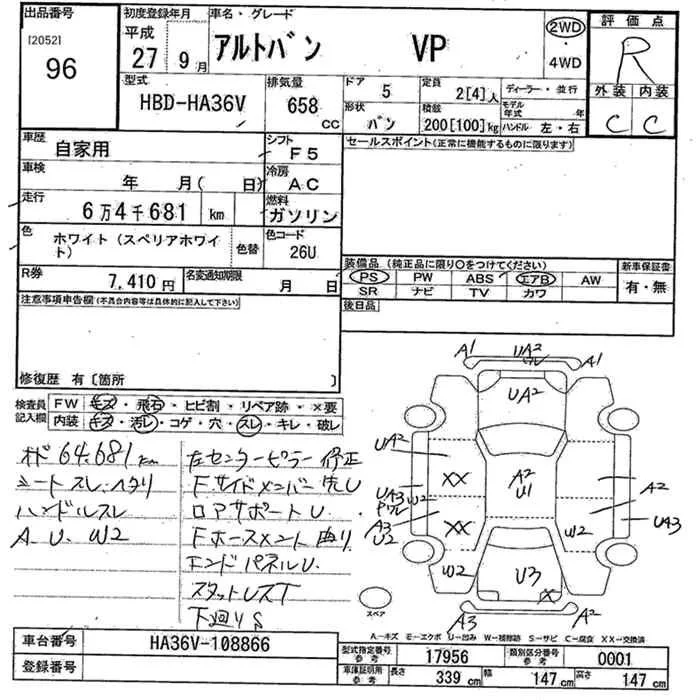 出品番号 初度登録年月 車名・グレード 評価点
[2052]
96
平成 27年 9月
アルトバン VP
2WD・4WD
R
型式 排気量 ドア 定員 ディーラー・並行 外装 内装
HBD-HA36V 658 CC 5 2[4]人
形状 積載 モデル年式 年
バン 200[100]kg ハンドル 左・右 C C
車歴 自家用 シフト F5 セールスポイント(正常に機能するものに限ります)
車検 年 月( 日) 冷房 AC
走行 6万4千681 km 燃料 ガソリン
色 ホワイト(スペリアホワイト) 色替 色コード 26U
装備品(純正品に限り○をつけてください) 新車保証書
PS PW ABS エアB AW 有・無
SR ナビ TV カワ
R券 7,410円 名変通知期限 月 日
後日品
注意事項申告欄(不具合内容等は具体的に記入して下さい)
修復歴 有〔箇所 〕
検査員記入欄 FW キズ・飛石・ヒビ割・リペア跡・×要
内装 キズ・汚レ・コゲ・穴・スレ・キレ・破レ
メド 64.681km 左センターピラー修正
シートスレ.ヘタリ Fサイドメンバー先U
ハンドルスレ ロアサポートU
A.U.W2 Fホースメント曲り
エンドパネルU
スタットレスT
下廻りS
A1 UA2 ワレ A1
UA2
UA2 XX A2 U1 A2
UA3 ワレ W2 UA3
A3 U2 XX W2
W2 U3 X
スペア A3 A2
A…キズ E…エクボ U…凹み W…補修跡 S…サビ C…腐食 XX…交換済
車台番号 HA36V-108866
型式指定番号 参考 17956 類別区分番号 参考 0001
登録番号
車庫証明用 参考 長さ 339cm 幅 147cm 高さ 147cm